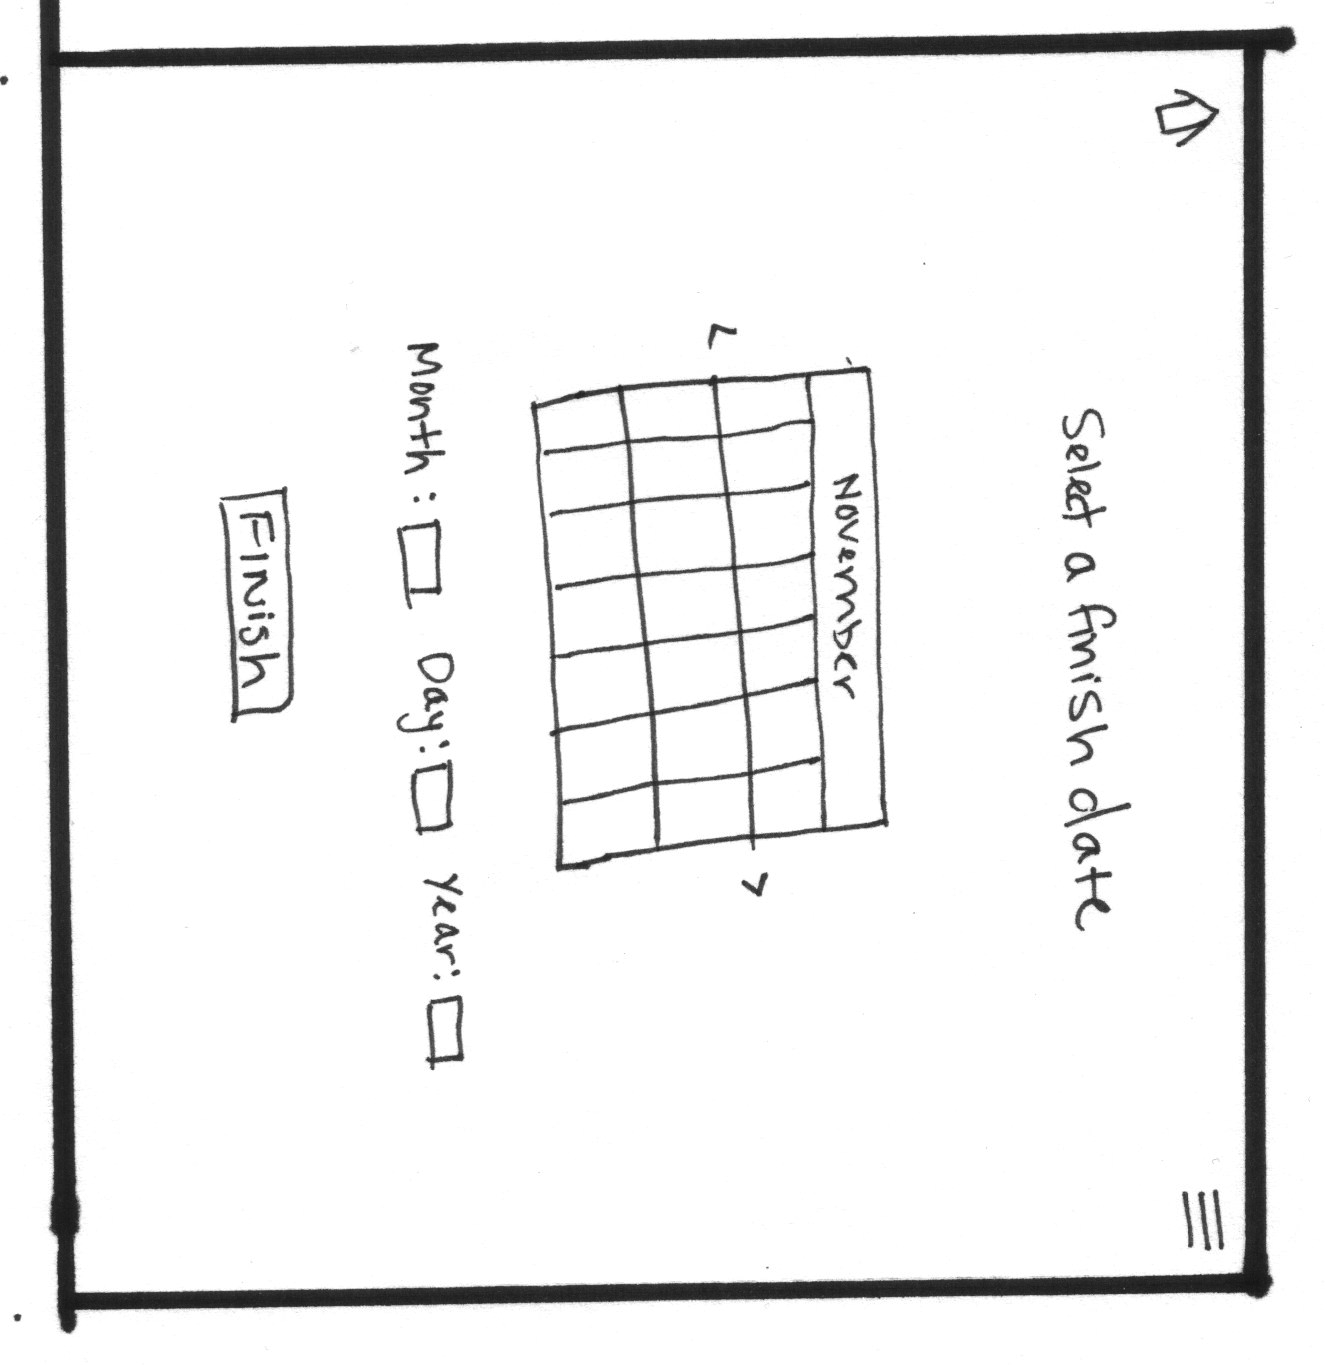 Select a finish date
November
< >
Month: Day: Year:
Finish